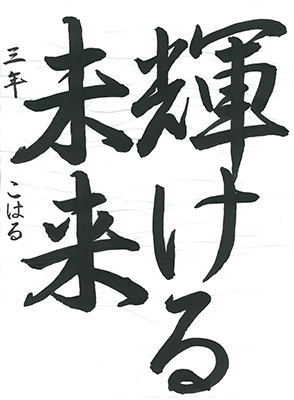 輝ける
未来
三年 こはる